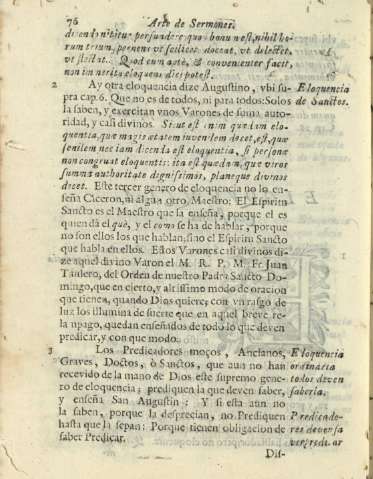 76 Arte de Sermones.
dicendi nititur persuadere quod bonum est, nihil ho-
rum trium, pereneni vt scilicet doceat, vt delectet,
vt flectat. Quod cum aptè, & convenienter facit,
non immerito eloquens dici potest.
2 Ay otra eloquencia dize Augustino, vbi su- Eloquencia
pra cap. 6. Que no es de todos, ni para todos: Solos de Sanctos.
la saben, y exercitan vnos Varones de suma auto-
ridad, y casi divinos. Sicut est enim quædam elo-
quentia, quæ magis ætatem iuvenilem decet, est, quæ
senilem nec iam dicenda est eloquentia, si personæ
non congruat eloquentis: ita est quædam, quæ viros
summa authoritate dignissimos, planeque divinos
decet. Este tercer genero de eloquencia no lo en-
seña Ciceron, ni algun otro Maestro: El Espiritu
Sancto es el Maestro que la enseña, porque el es
quien dà el què, y el como se ha de hablar, porque
no son ellos los que hablan, sino el Espiritu Sancto
que habla en ellos. Estos Varones casi divinos di-
ze aquel divino Varon el M. R. P. M. Fr. Juan
Taulero, del Orden de nuestro Padre Sancto Do-
mingo, que en cierto, y altissimo modo de oracion
que tienen, quando Dios quiere, con vn rasgo de
luz los illumina de suerte que en aquel breve re-
lampago, quedan enseñados de todo lo que deven
predicar, y con que modo.
3 Los Predicadores moços, Ancianos, Eloquencia
Graves, Doctos, ò Sanctos, que aun no han ordinaria
recevido de la mano de Dios este supremo gene- todos deven
ro de eloquencia; prediquen la que deven saber, saberla.
y enseña San Augustin: Y si esta aun no
la saben, porque la desprecian, no Prediquen Predicado-
hasta que la sepan: Porque tienen obligacion de res deven sa
saber Predicar. ver predicar
Dis-